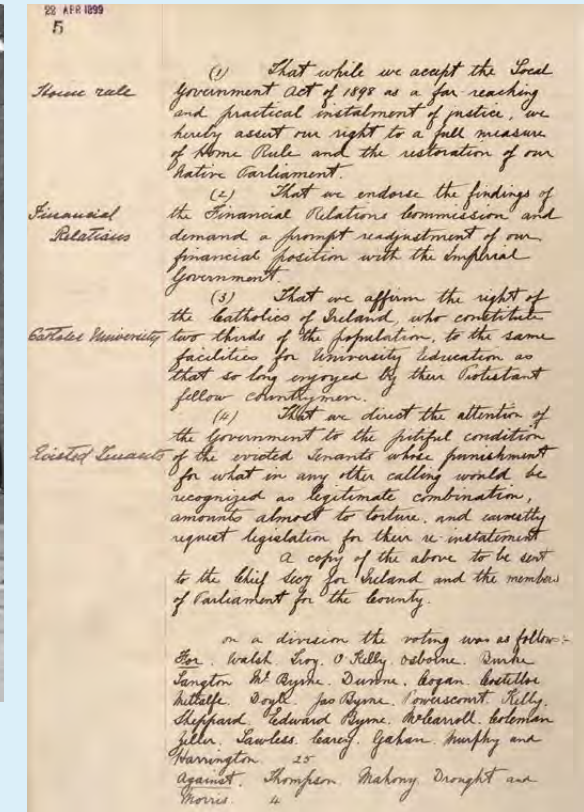 22 APR 1899
5
(1) That while we accept the Local
Home rule
Government Act of 1898 as a far-reaching
and practical instalment of justice, we
hereby assert our right to a full measure
of Home Rule and the restoration of our
Native Parliament.
(2) That we endorse the findings of
Financial
Relations
the Financial Relations Commission and
demand a prompt readjustment of our
financial position with the Imperial
Government.
(3) That we affirm the right of
the Catholics of Ireland, who constitute
Catholic University
two thirds of the population, to the same
facilities for University Education as
that so long enjoyed by their Protestant
fellow countrymen.
(4) That we direct the attention of
the Government to the pitiful condition
Evicted Tenants
of the evicted tenants whose punishment
for what in any other calling would be
recognized as legitimate combination,
amounts almost to torture, and earnestly
request legislation for their re-instatement
A copy of the above to be sent
to the Chief Secy for Ireland and the members
of Parliament for the County.
on a division the voting was as follow:-
For. Walsh. Troy. O'Kelly. Osborne. Burke
Langton Mr Byrne. Dunne. Cogan. Costelloe
Metcalfe. Doyle. Jas Byrne. Powerscourt. Kelly.
Sheppard. Edward Byrne. McCarroll. Coleman
Zeller. Lawless. Carey. Gahan. Murphy and
Harrington. 25
Against. Thompson. Mahony. Drought and
Morris. 4